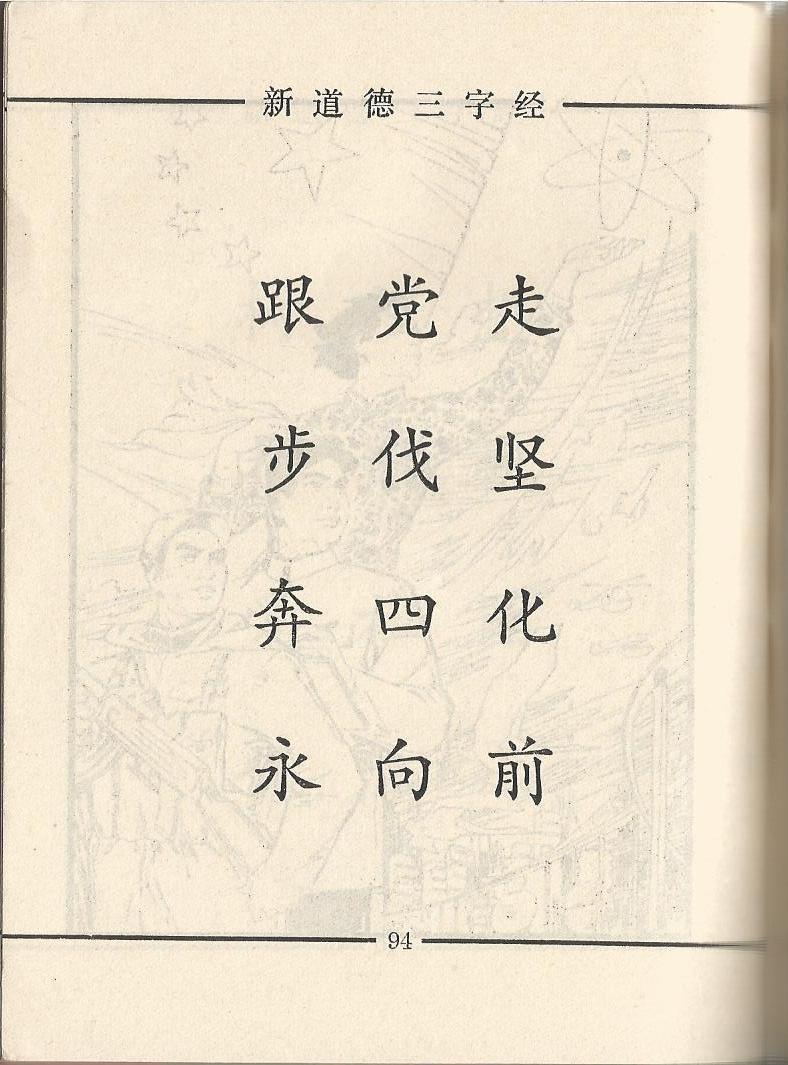 新道德三字经
跟党走
步伐坚
奔四化
永向前
94